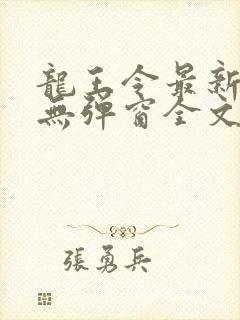 龍王令最新
無彈窗全文
張勇兵